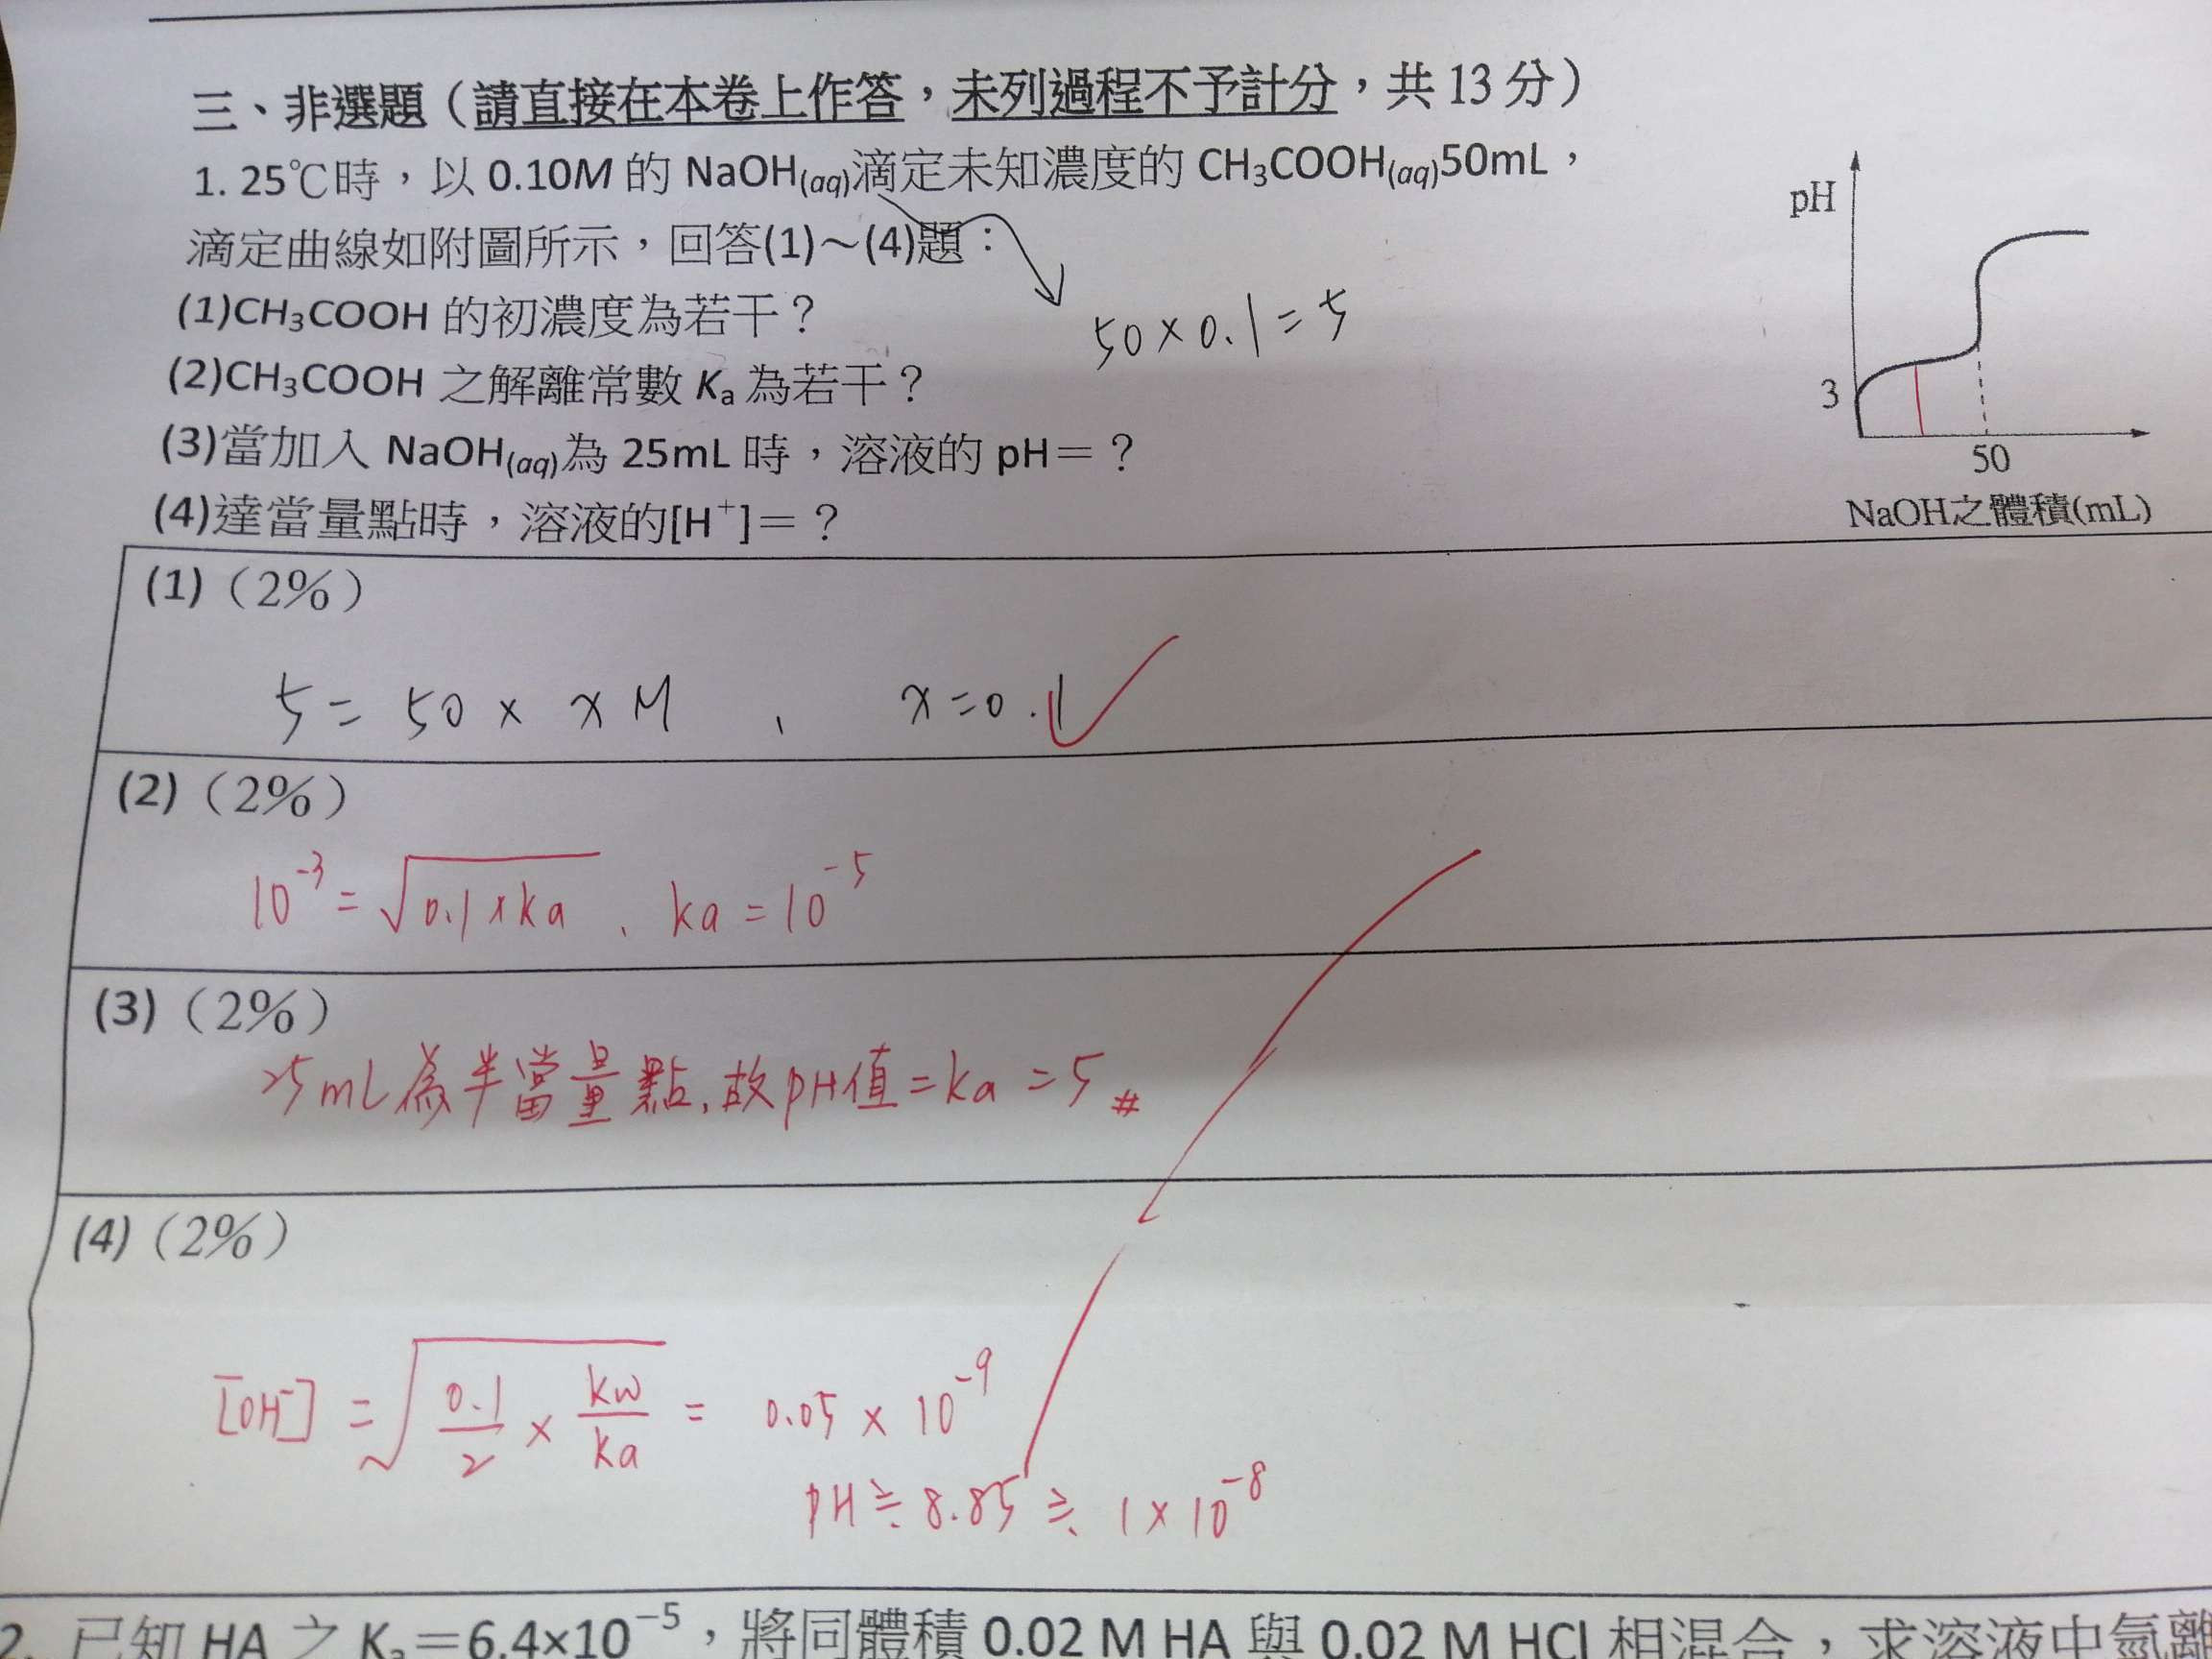 三、非選題（請直接在本卷上作答，未列過程不予計分，共 13 分）
1. 25℃時，以 0.10M 的 NaOH(aq)滴定未知濃度的 CH₃COOH(aq)50mL，
滴定曲線如附圖所示，回答(1)～(4)題：
(1)CH₃COOH 的初濃度為若干？
50×0.1=5
(2)CH₃COOH 之解離常數 Kₐ 為若干？
(3)當加入 NaOH(aq)為 25mL 時，溶液的 pH＝？
(4)達當量點時，溶液的[H⁺]＝？
pH
3
50
NaOH之體積(mL)
(1)（2%）
5 = 50 × x M 、 x=0.1
(2)（2%）
10⁻³ = √(0.1×ka) 、 ka = 10⁻⁵
(3)（2%）
25mL為半當量點,故pH值=ka=5#
(4)（2%）
[OH⁻] = √(0.1/2 × kw/ka) = 0.05 × 10⁻⁹
pH≒8.85≒1×10⁻⁸
2. 已知 HA 之 Kₐ＝6.4×10⁻⁵，將同體積 0.02 M HA 與 0.02 M HCl 相混合，求溶液中氫離